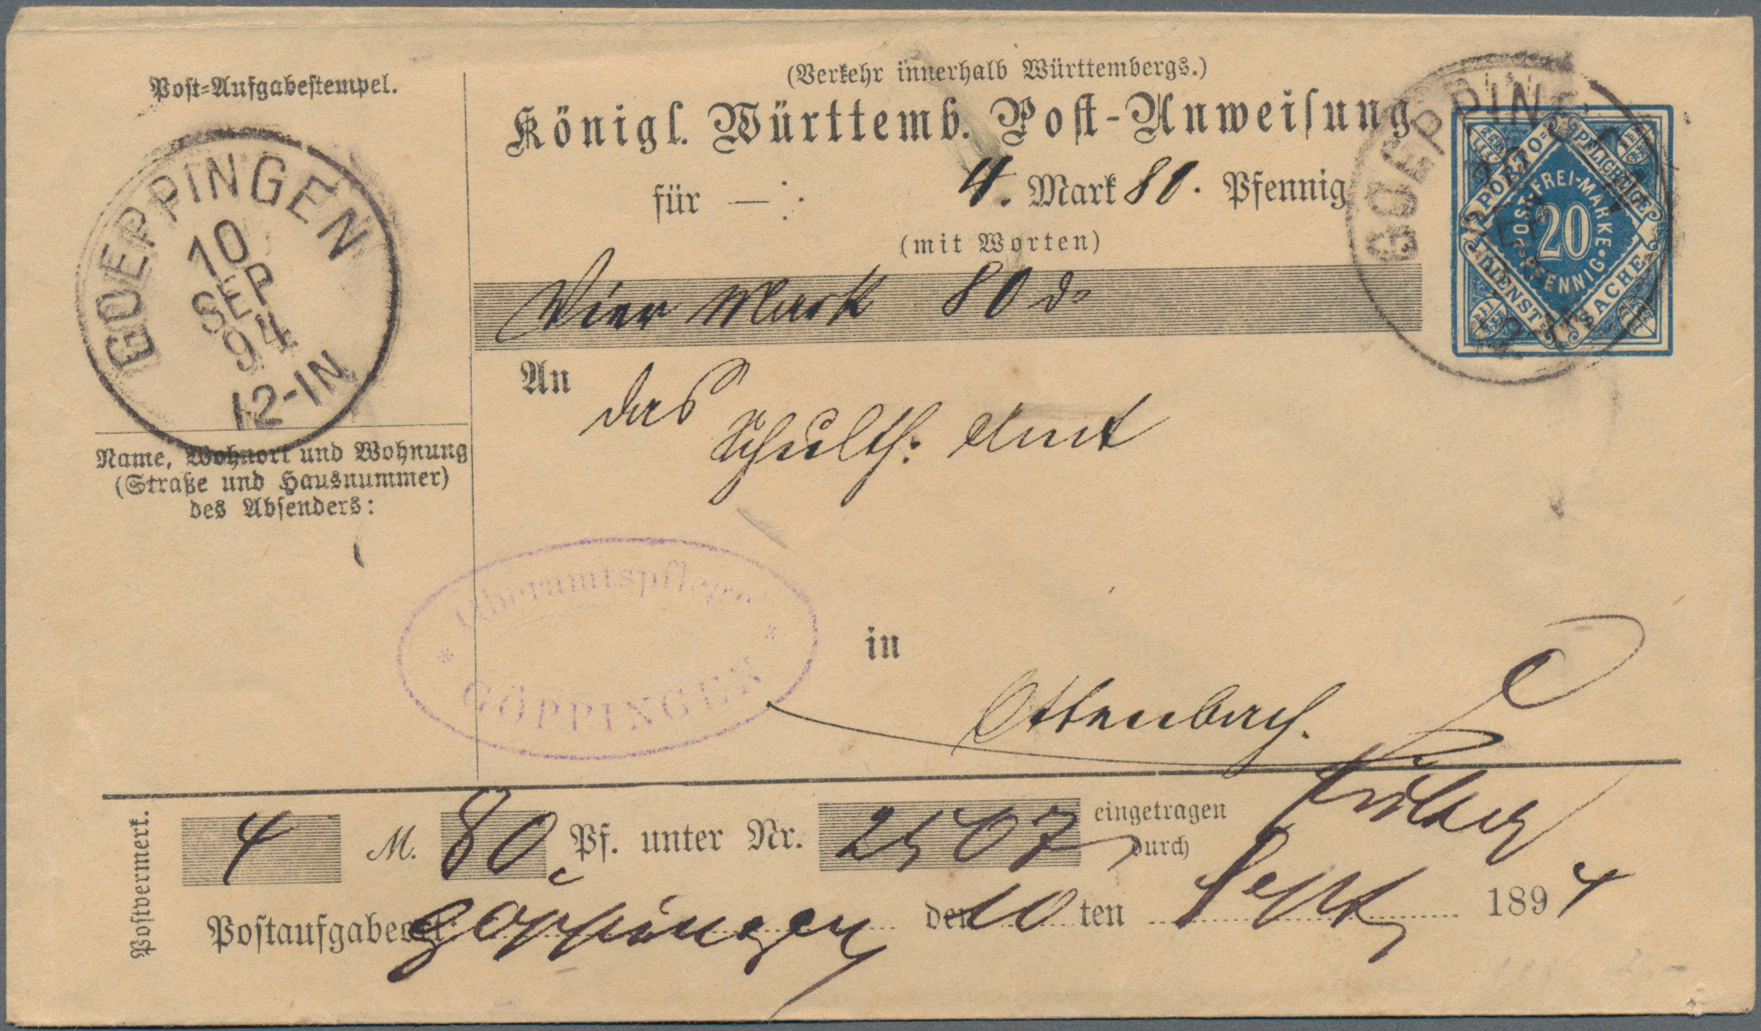 Post-Aufgabestempel.
GOEPPINGEN
10
SEP
94
12-1N
Name, Wohnort und Wohnung
(Straße und Hausnummer)
des Absenders:
(Verkehr innerhalb Württembergs.)
Königl. Württemb. Post-Anweisung
für — 4. Mark 80. Pfennig
(mit Worten)
Vier Mark 80 d.
An das
Schulth. Amt
in
Ottenbach.
GOEPPINGEN
PORTO-PFLICHTIGE
DIENSTSACHE
POST-FREI-MARKE
20
PFENNIG
Oberamtspflege
* *
GÖPPINGEN
Postvermerk.
4 M. 80 Pf. unter Nr. 2507 eingetragen
durch
Postaufgabeort: Göppingen den 10 ten Sept 1894